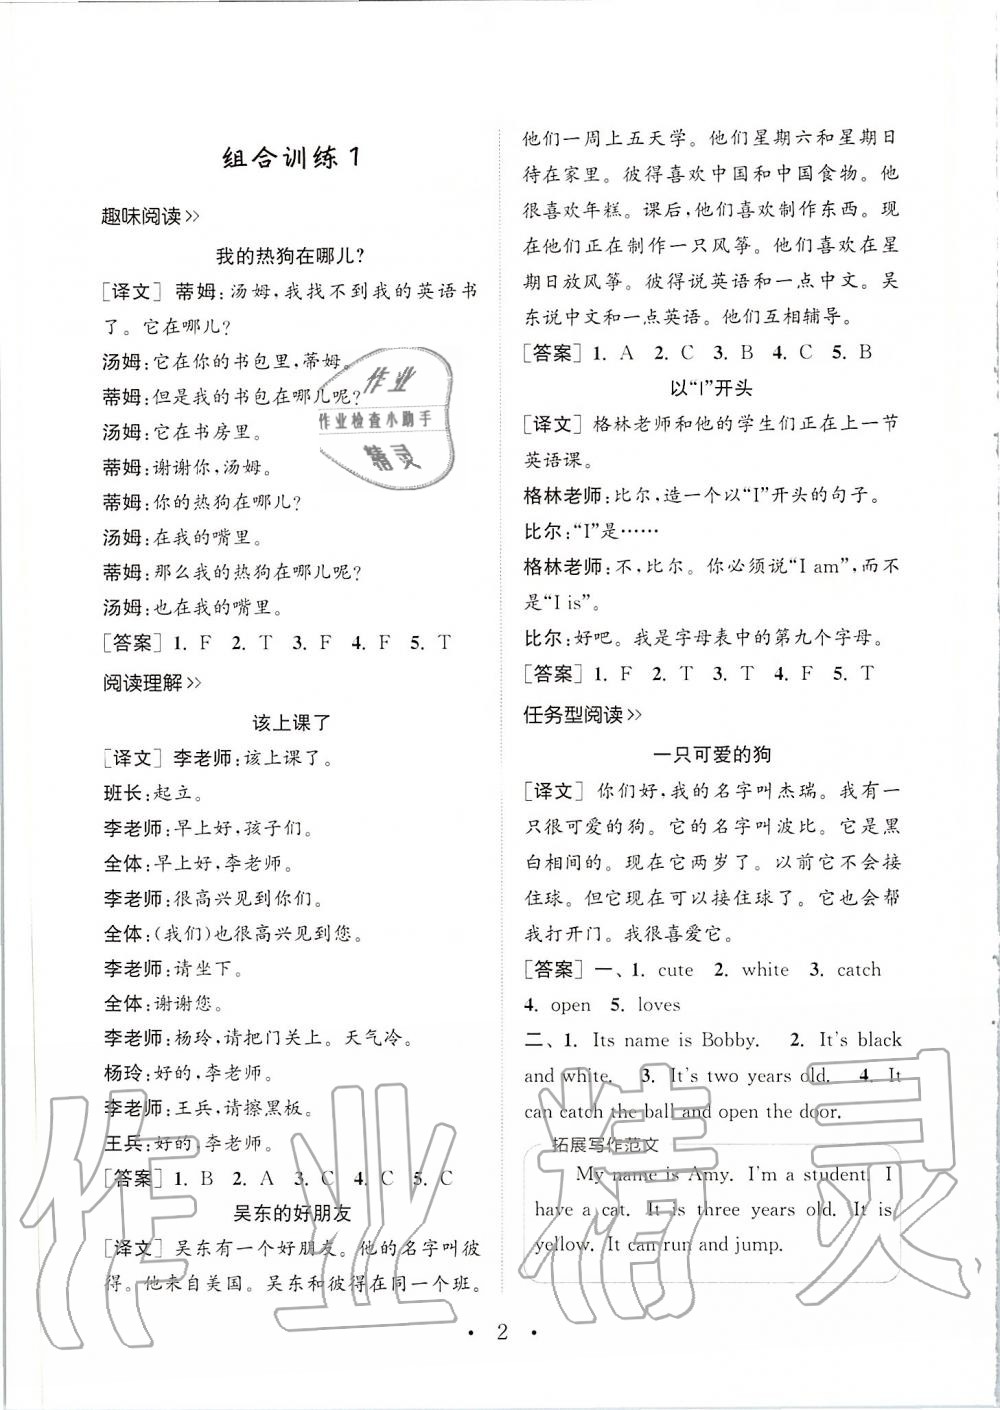 组合训练1
趣味阅读>>
我的热狗在哪儿?
[译文] 蒂姆:汤姆,我找不到我的英语书
了。它在哪儿?
汤姆:它在你的书包里,蒂姆。
蒂姆:但是我的书包在哪儿呢?
汤姆:它在书房里。
蒂姆:谢谢你,汤姆。
蒂姆:你的热狗在哪儿?
汤姆:在我的嘴里。
蒂姆:那么我的热狗在哪儿呢?
汤姆:也在我的嘴里。
[答案] 1. F 2. T 3. F 4. F 5. T
阅读理解>>
该上课了
[译文] 李老师:该上课了。
班长:起立。
李老师:早上好,孩子们。
全体:早上好,李老师。
李老师:很高兴见到你们。
全体:(我们)也很高兴见到您。
李老师:请坐下。
全体:谢谢您。
李老师:杨玲,请把门关上。天气冷。
杨玲:好的,李老师。
李老师:王兵,请擦黑板。
王兵:好的,李老师。
[答案] 1. B 2. A 3. C 4. C 5. C
吴东的好朋友
[译文] 吴东有一个好朋友。他的名字叫彼
得。他来自美国。吴东和彼得在同一个班。
他们一周上五天学。他们星期六和星期日
待在家里。彼得喜欢中国和中国食物。他
很喜欢年糕。课后,他们喜欢制作东西。现
在他们正在制作一只风筝。他们喜欢在星
期日放风筝。彼得说英语和一点中文。吴
东说中文和一点英语。他们互相辅导。
[答案] 1. A 2. C 3. B 4. C 5. B
以“I”开头
[译文] 格林老师和他的学生们正在上一节
英语课。
格林老师:比尔,造一个以“I”开头的句子。
比尔:“I”是……
格林老师:不,比尔。你必须说“I am”,而不
是“I is”。
比尔:好吧。我是字母表中的第九个字母。
[答案] 1. F 2. T 3. T 4. F 5. T
任务型阅读>>
一只可爱的狗
[译文] 你们好,我的名字叫杰瑞。我有一
只很可爱的狗。它的名字叫波比。它是黑
白相间的。现在它两岁了。以前它不会接
住球。但它现在可以接住球了。它也会帮
我打开门。我很喜爱它。
[答案] 一、1. cute 2. white 3. catch
4. open 5. loves
二、1. Its name is Bobby. 2. It's black
and white. 3. It's two years old. 4. It
can catch the ball and open the door.
拓展写作范文
My name is Amy. I'm a student. I
have a cat. It is three years old. It is
yellow. It can run and jump.
· 2 ·
作业
作业检查小助手
精灵
作业精灵